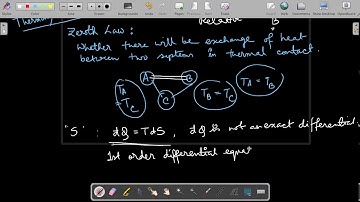 Thermal
Relation B
Zeroth Law :
Whether there will be exchange of heat
between two systems in thermal contact.
A B C
T_A = T_C
T_B = T_C
T_A = T_B
"S" : dQ = TdS , dQ is not an exact differential.
1st order differential equat